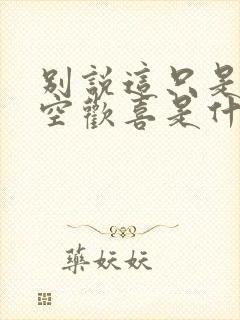 別說這只是
空歡喜是什
藥妖妖